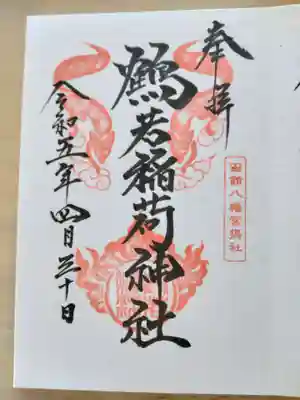 奉拝
函館八幡宮境社
鶴若稲荷神社
令和五年四月三十日